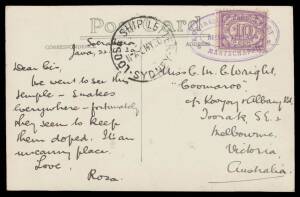 POST CARD
CORRESPONDENCE
Sourabaya
Java, 22
Dear Sis,
We went to see the
temple – snakes
everywhere – fortunately
they seem to keep
them doped. It's an
uncanny place.
Love,
Rosa.
LOOSE SHIP LETTER
SYDNEY
10
Miss C. M. C. Wright,
"Coomaroo"
Kooyong & Albany Rd,
Toorak, S.E. 2
Melbourne,
Victoria,
Australia.